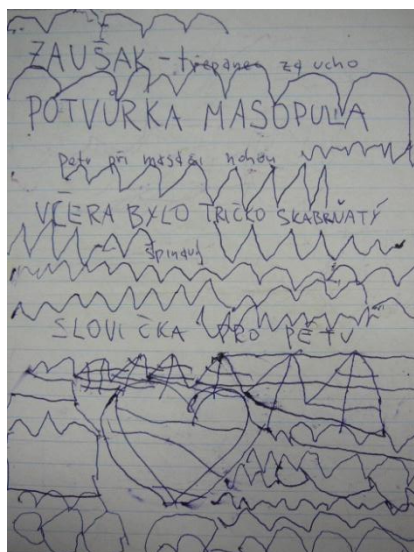 ZAUŠAK - třepanec za ucho
POTVŮRKA MASOPULA
při masáži nohou
VČERA BYLO TRIČKO SKABRŇATÝ
špinavý
SLOVÍČKA PRO PÉTU